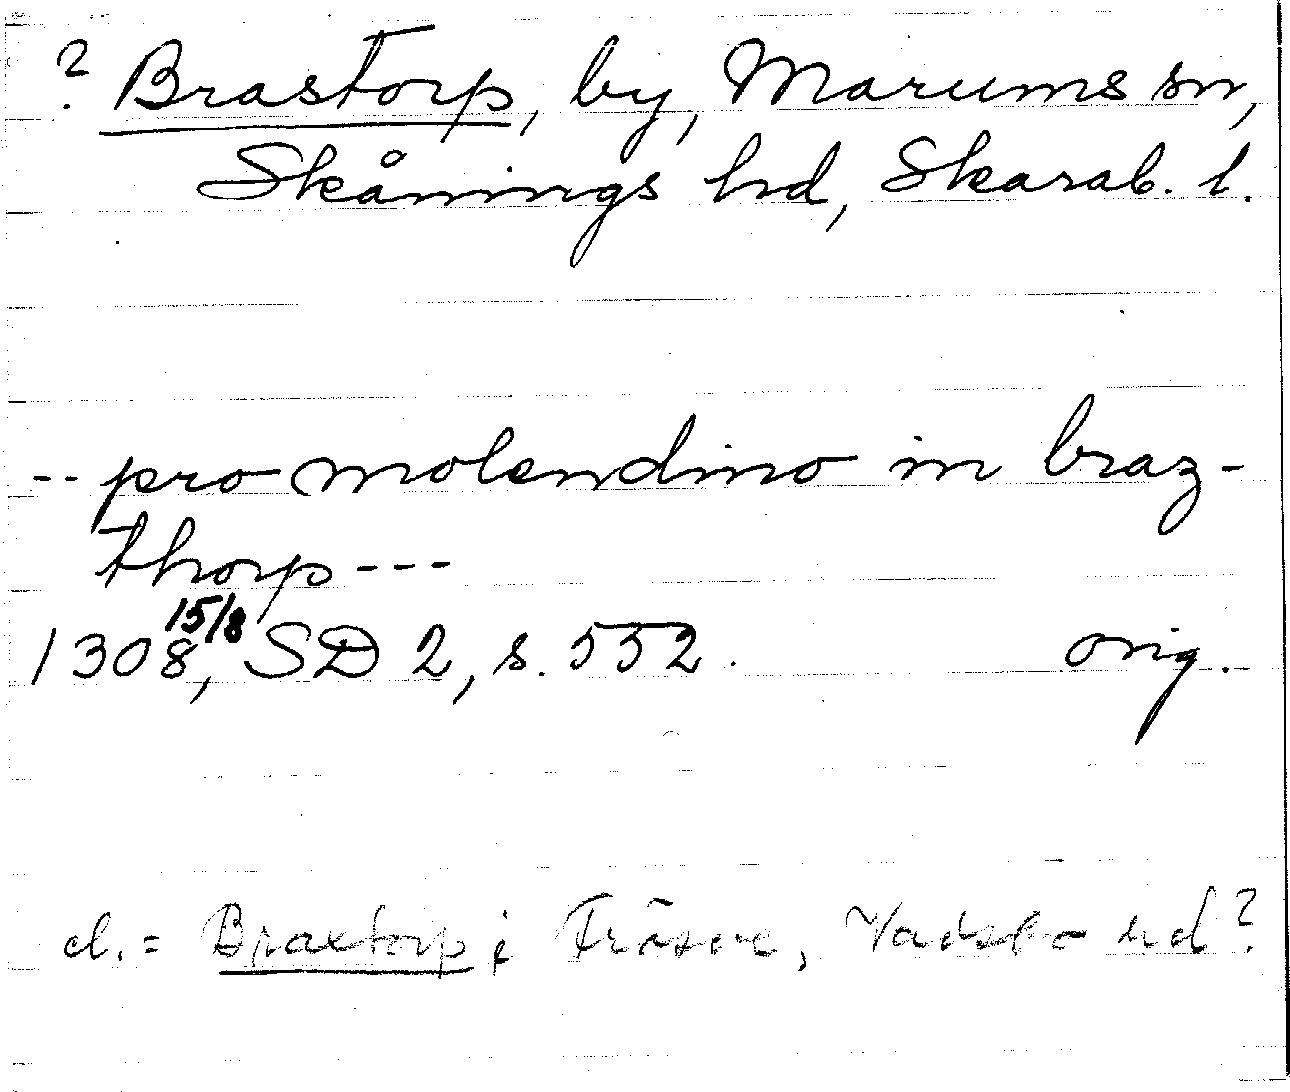 ? Brastorp, by, Marums sn,
Skånings hd, Skarab. l.
-- pro molendino in braz-
thorp ---
15/8
1308, SD 2, s. 552. orig.
el. = Braxtorp i Fräsve, Vadsbo hd?